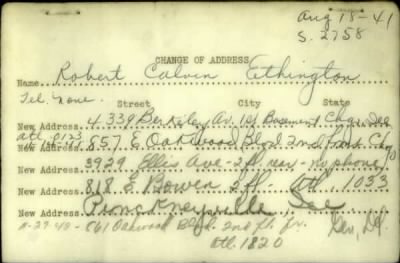 Aug 18-41
S. 2758
CHANGE OF ADDRESS
Name Robert Calvin Ethington
Tel. none.
Street City State
New Address 4339 Berkeley Av. 1st Basement Chgo.
New Address 857 E Oakwood Blvd 2nd
3929 Ellis Ave - 2 fl. rear - no phone
New Address 818 E Bowen 2 fl. Atl. 1033
New Address Pinckneyville
11-27-40 - 561 Oakwood Blvd. 2nd fl. fr.
Atl. 1820